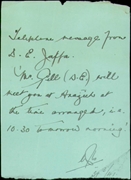 Telephone message from
D. E. Jaffa.
"Mr. Gill (D.E.) will
meet you at
the time arranged, i.e.
10.30 tomorrow morning."